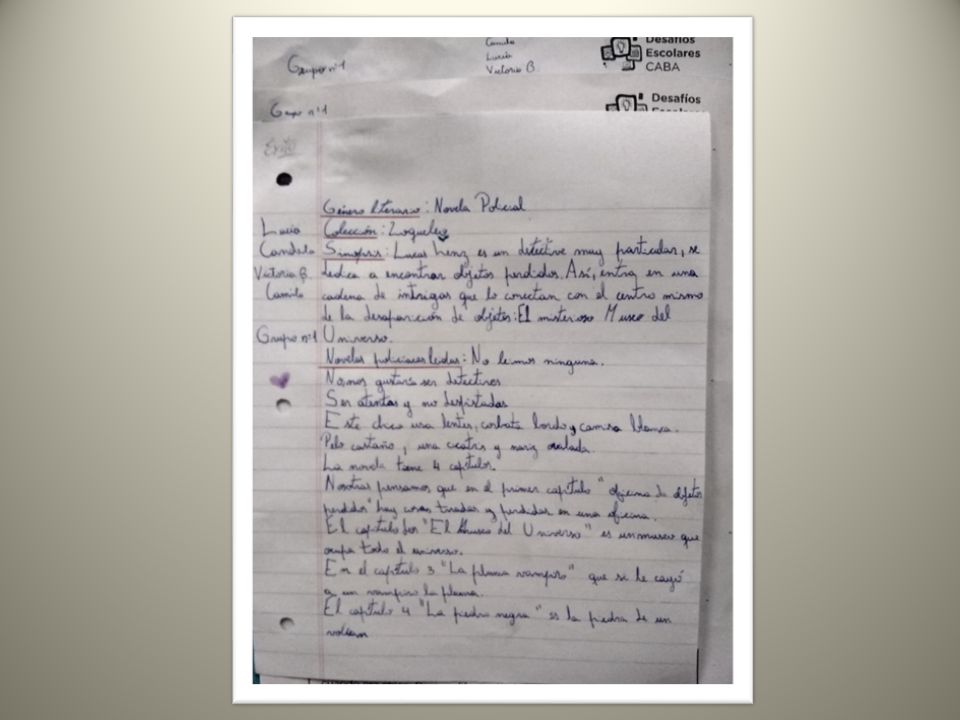 Grupo nº1
Camila
Lucia
Victoria B.
Desafíos
Escolares
CABA
Grupo nº1
Desafíos
Escolares
Género literario: Novela Policial
Lucia
Colección: Loqueleo
Candela
Sinopsis: Lucas Lenz es un detective muy particular, se
Victoria B.
dedica a encontrar objetos perdidos. Así, entra en una
Camila
cadena de intrigas que lo conectan con el centro mismo
de la desaparición de objetos: El misterioso Museo del
Grupo nº1
Universo.
Novelas policiaces leidas: No leimos ninguna.
Nos gustaria ser detectives
Ser atentas y no despistadas
Este chico usa lentes, corbata bordo y camisa blanca.
Pelo castaño, una cicatriz y nariz ovalada.
La novela tiene 4 capitulos.
Nosotras pensamos que en el primer capítulo "oficina de objetos
perdidos" hay cosas tiradas y perdidas en una oficina.
El capitulo dos "El Museo del Universo" es un museo que
ocupa todo el universo.
En el capitulo 3 "La pluma vampiro" que se le cayó
a un vampiro la pluma.
El capitulo 4 "La piedra negra" es la piedra de un
volcan